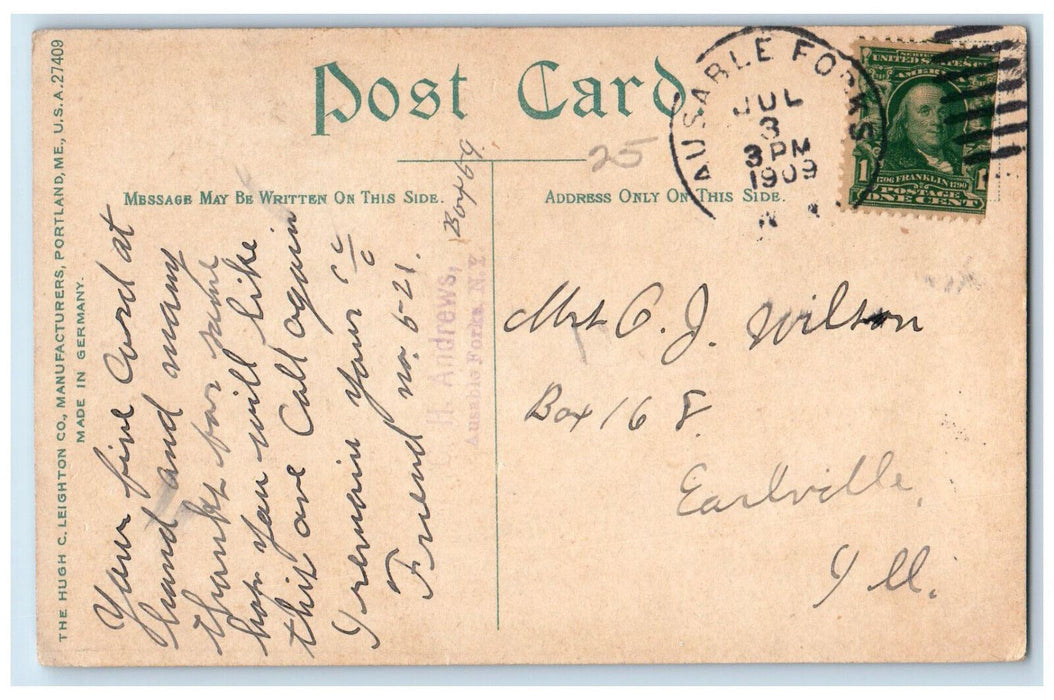 Post Card
MESSAGE MAY BE WRITTEN ON THIS SIDE.
ADDRESS ONLY ON THIS SIDE.
THE HUGH C. LEIGHTON CO., MANUFACTURERS, PORTLAND, ME., U.S.A. 27409
MADE IN GERMANY.
AUSABLE FORKS
JUL
3
3 PM
1909
N. Y.
UNITED STATES OF
AMERICA
1706 FRANKLIN 1790
1 1
POSTAGE
ONE CENT
25
Your fine Card at
hand and many
thanks for same
hop you will like
this one Call again
I remain your
Friend no. 5-21.
H. Andrews,
Ausable Forks, N.Y
Box 69
C. J. Wilson
Box 168
Earlville,
Ill.